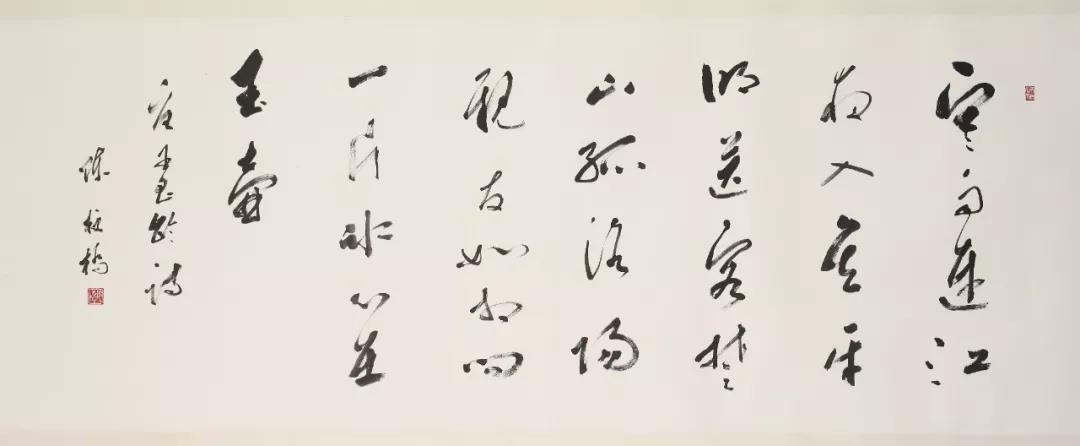 寒雨連江
夜入吳平
明送客楚
山孤洛陽
親友如相問
一片冰心在
玉壺
唐王昌齡詩
陳